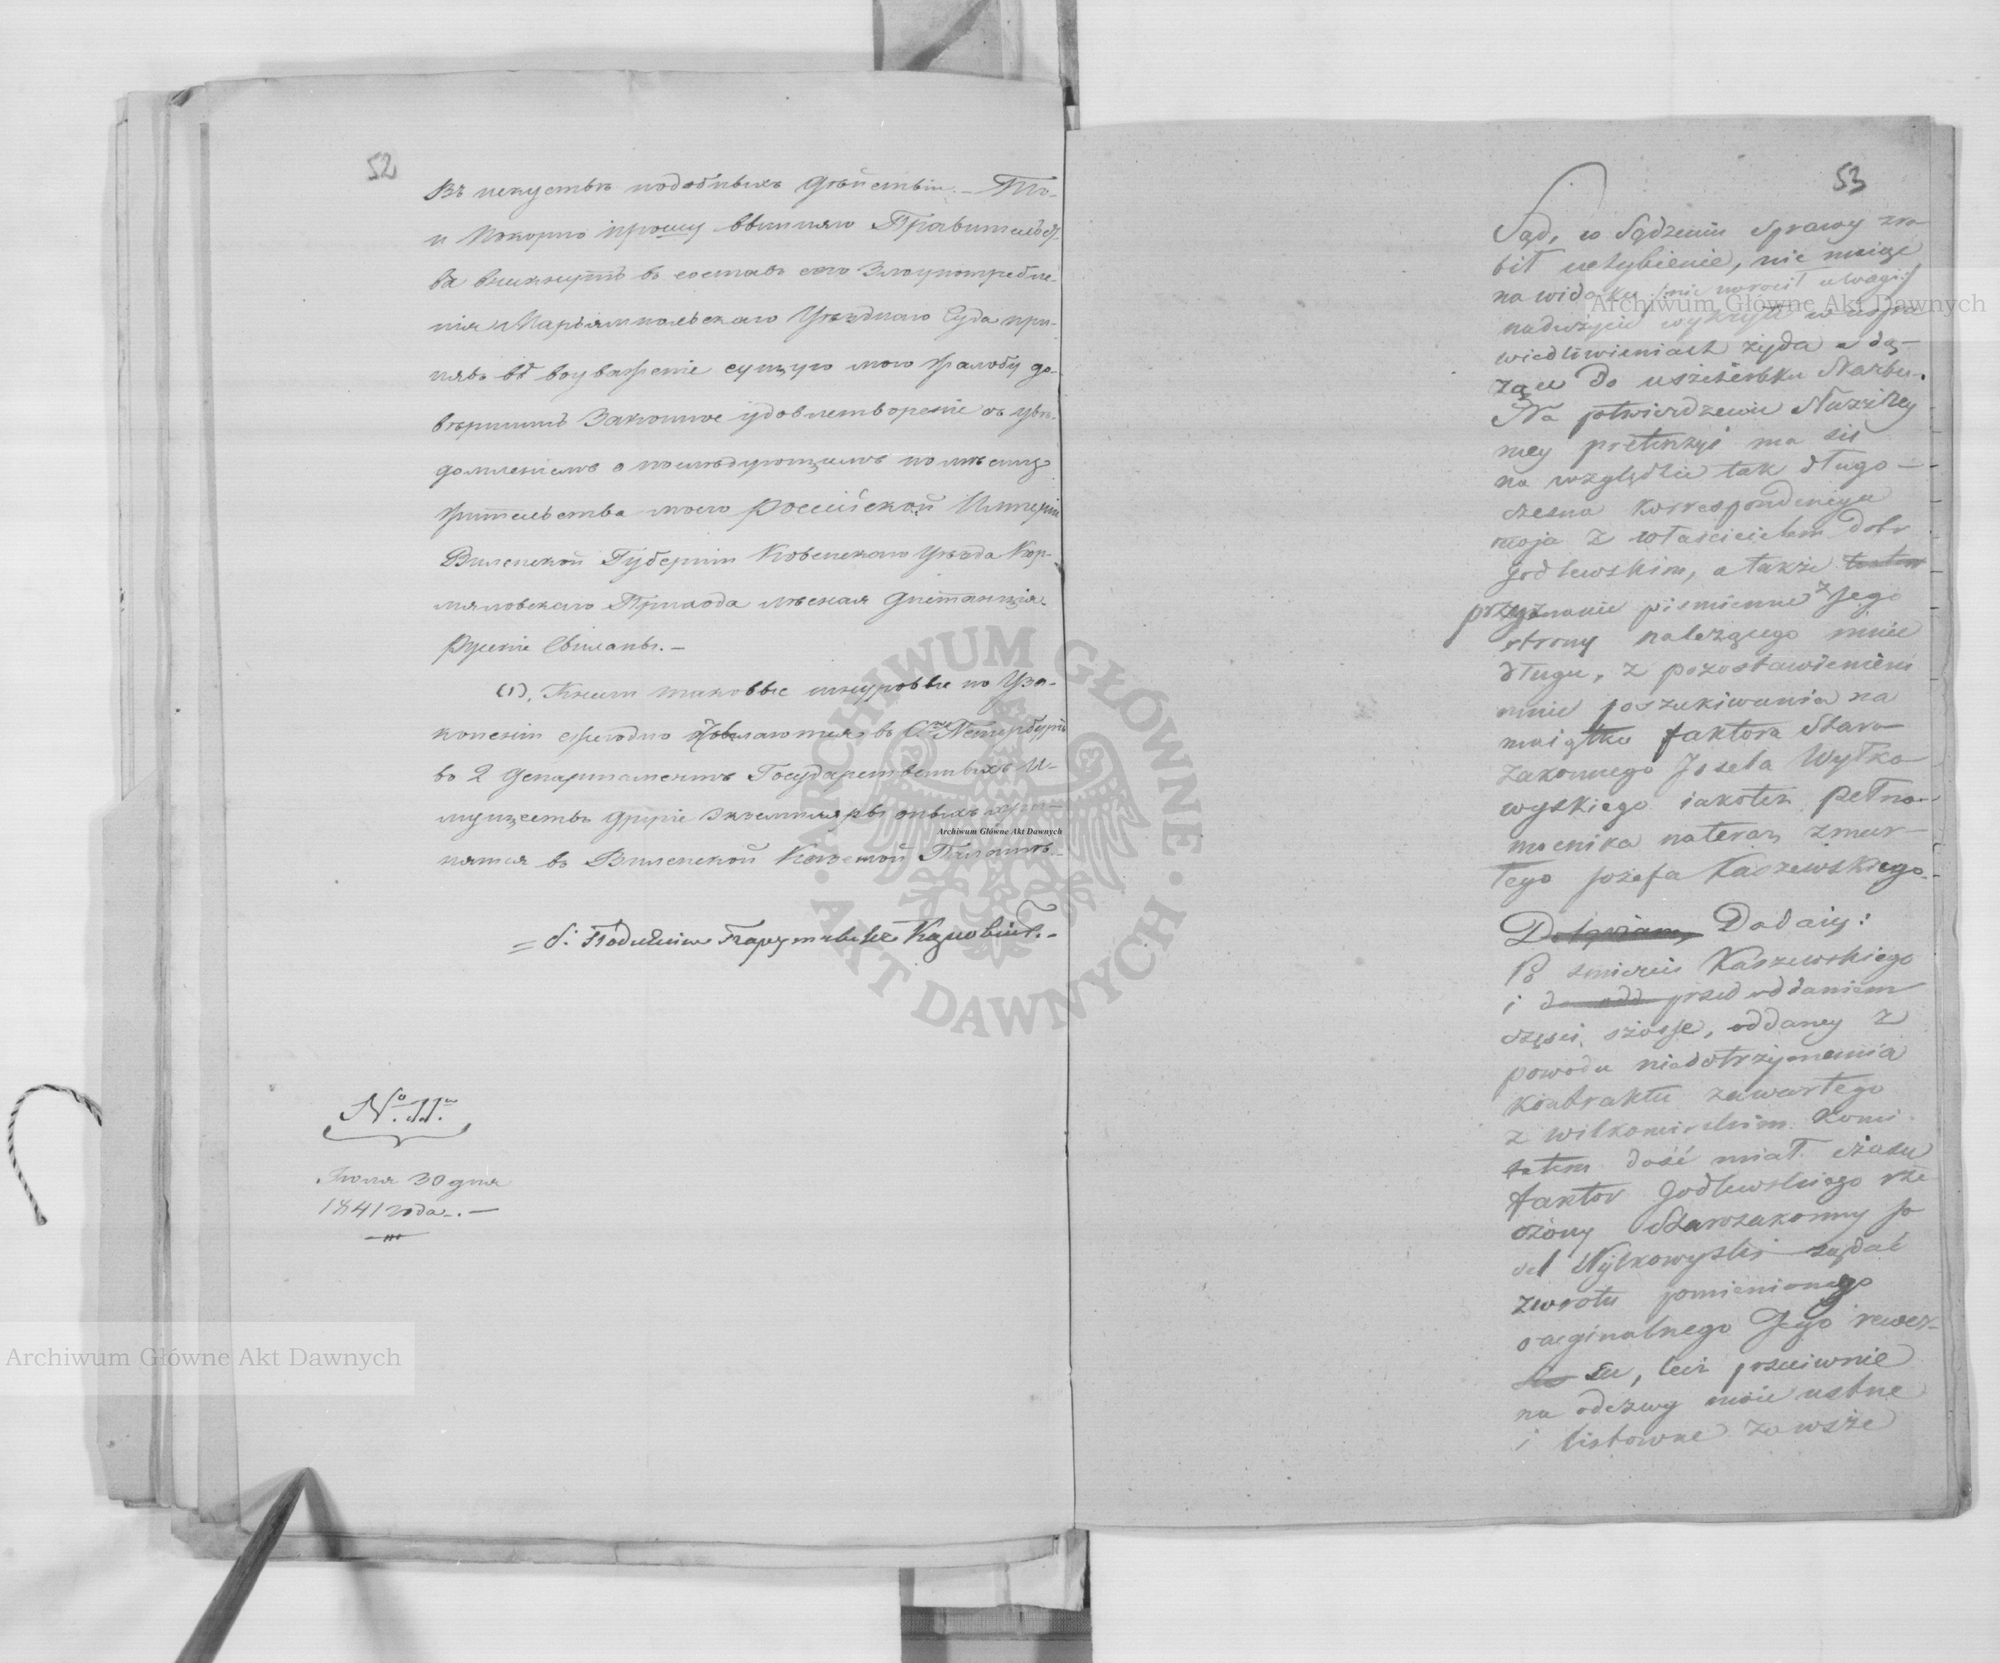 52
въ искуствѣ подобныхъ дѣйствіи. – То-
и покорно прошу вышняго Правительст-
ва вникнуть въ составъ сего Злоупотребле-
нія Маріампольскаго Уѣзднаго Суда при-
нявъ въ воуваженіе сущую мою жалобу до-
вершить Законное удовлетвореніе съ увѣ-
домленіемъ о послѣдующемъ по мѣсту
жительства моего Россійской Имперіи
Виленской Губерніи Ковенскаго Уѣзда Кор-
мяловскаго Прихода лѣсная дистанція
(1). Книги таковые шнуровые по Уза-
коненіи ежегодно въ Сктъ Петербургъ
во 2 Департаментъ Государственныхъ И-
муществъ другіе Экземпляры оныхъ хра-
нятся въ Виленской Казенной Палатѣ. –
№ 11.
Іюля 30 дня
1841 года. –
53
Sąd, w Sądzeniu Sprawy zro
bił uchybienie, nie maiąc
na widoku /nie zwrócił uwagi/
nadużyciu wykrytu w uspra
wiedliwieniach żyda a dą-
żące do uszczerbku Skarbu.
Na potwierdzenie
mey pretenzyi ma się
na względzie tak długo-
czesna korrespondencya
moja z właścicielem Dobr
Godlewskim, a także
przyznanie piśmienne z Jego
strony należącego mnie
długu, z pozostawieniem
mnie poszukiwania na
maiątku faktora Staro-
zakonnego Josela Wyłko
wyskiego iakoteż pełno-
mocnika nateraz zmar-
łego Józefa Kaszewskiego.
Dodaię:
Po śmierci Kaszewskiego
i przed oddaniem
części szosse, oddaney z
powodu niedotrzymania
kontraktu zawartego
z Wiłkomirskim Komi-
tetem dość miał czasu
faktor Godlewskiego rze
czony Starozakonny Jo
sel Wyłkowyski żądać
zwrotu pomienionego
oryginalnego Jego rewer-
su, lecz przeciwnie
na odezwy moie ustne
i listowne zawsze
Archiwum Główne Akt Dawnych
Archiwum Główne Akt Dawnych
Archiwum Główne Akt Dawnych
ARCHIWUM GŁÓWNE · AKT DAWNYCH ·